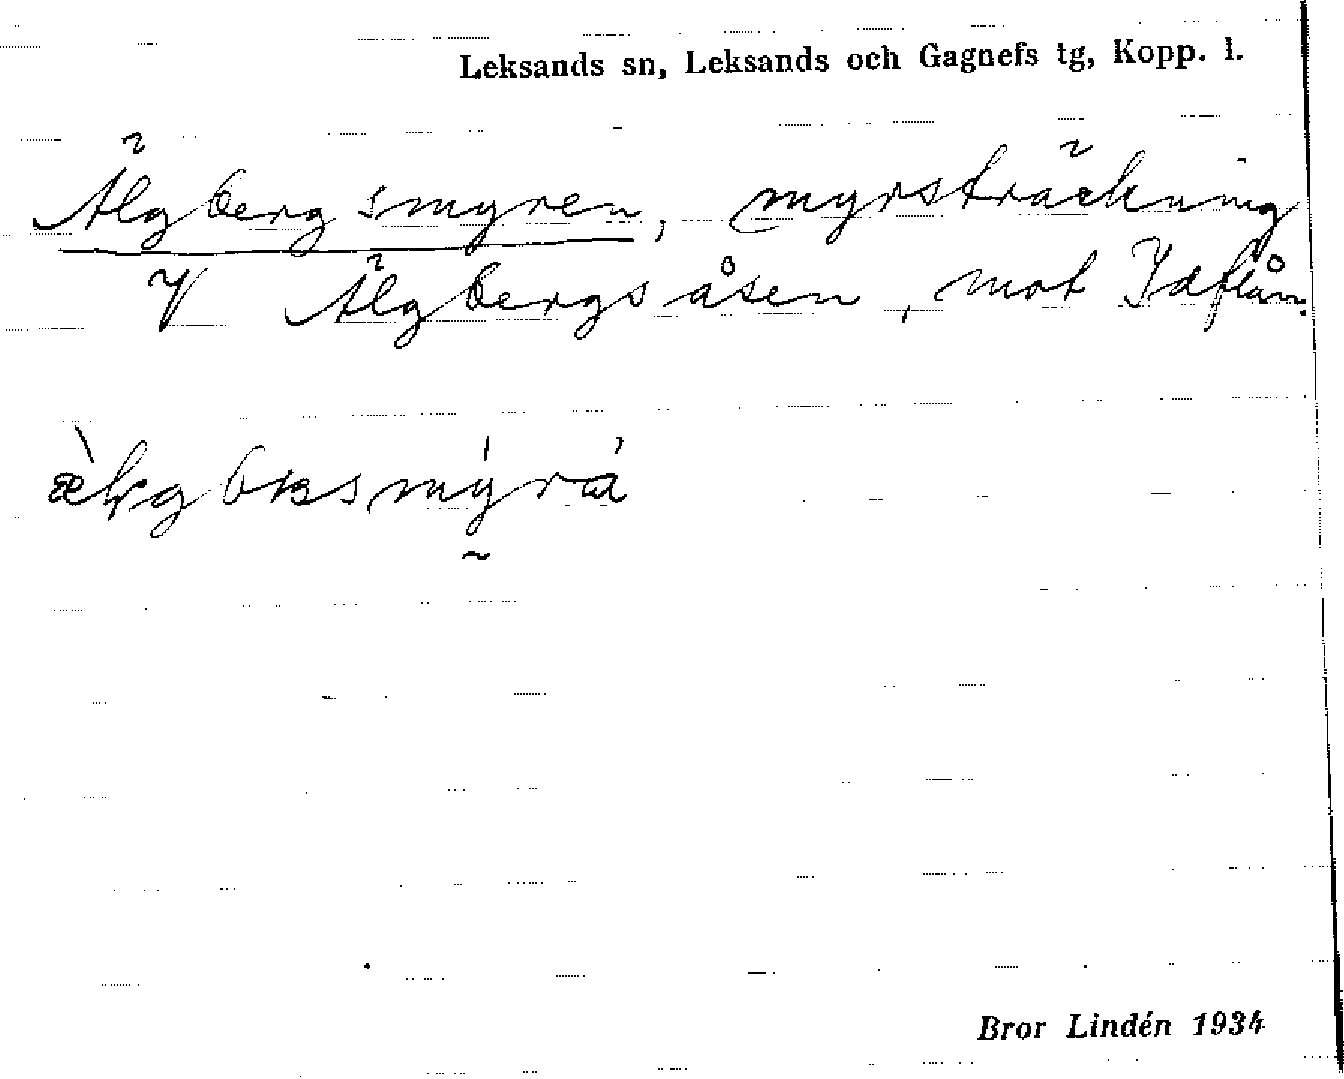 Leksands sn, Leksands och Gagnefs tg, Kopp. l.
Älgbergsmyren, myrsträckning
V Älgbergsåsen, mot Idflån.
Bror Lindén 1934